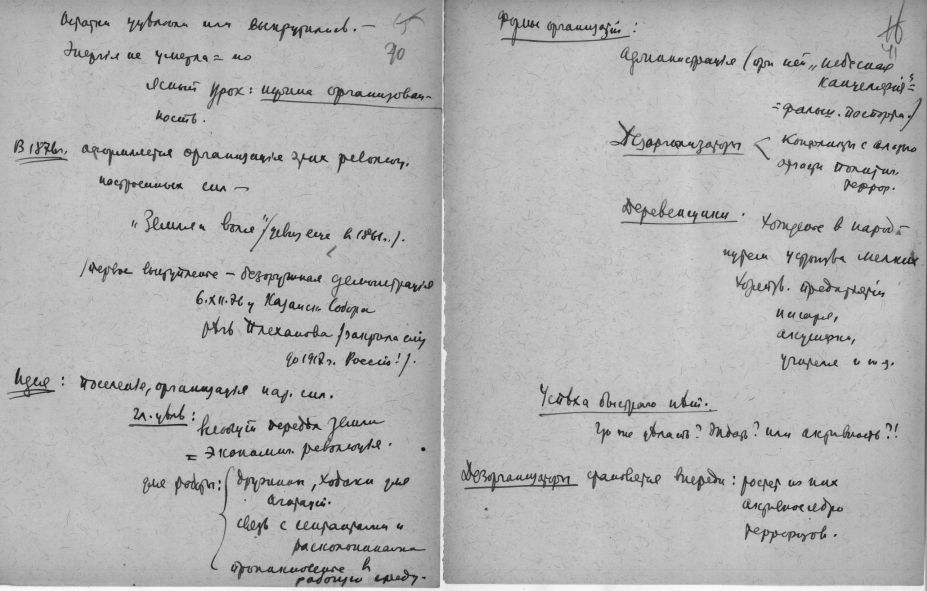 Остатки уцелели или выкрутились. —
90
Энергiя не умерла = но
ясный урок: нужна организован-
ность.
В 1876 г. оформляется организацiя этих революц.
настроенных сил —
"Земля и воля" /девиз еще в 1861 г./.
/первое выступление — безоружная демонстрацiя
6.XII.76 у Казанск. Собора
рѣчь Плеханова /закрыла ему
до 1917 г. Россiю!/.
Идея: поселенiе, организацiя нар. сил.
Гл. цѣль:
передѣл земли
= экономич. революцiя.
для работы: дружины, ходоки для
агитацiи.
связь с сектантами и
раскольниками
проникновенiе в
рабочую среду.
Формы организацiй:
41
Администрацiя (при ней "небесная
канцелярiя" =
= фальш. паспорта./
Дезорганизаторы < конфликты с властью
политич.
террор.
Деревенщики.
Хожденiе в народ =
путем устройства мелких
хозяйств. предпрiятiй
писаря,
акушерки,
учителя и т. д.
Успѣха быстрого нѣт.
Что же дѣлать? Ждать? или активность?!
Дезорганизаторы становятся впереди: растет из них
активное ядро
террористов.